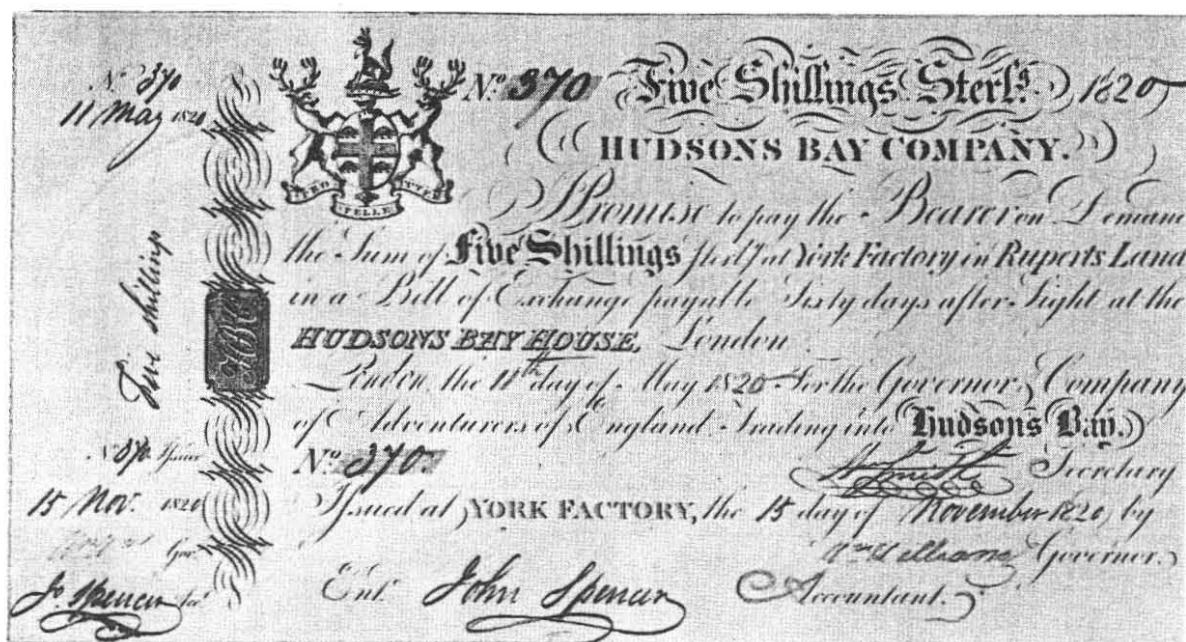 No 370
11 May 1820
Five shillings
No 370. Issued
15 Nov. 1820
Gov.
Jo. Spencer Acct
HBC
PRO PELLE CUTEM
No. 370 Five Shillings Sterlg. 1820
HUDSONS BAY COMPANY.
I Promise to pay the Bearer on Deman
the Sum of Five Shillings Sterlg at York Factory in Ruperts Land
in a Bill of Exchange payable Sixty days after Sight at the
HUDSONS BAY HOUSE, London
London, the 11th day of May 1820 For the Governor & Company
of Adventurers of England Trading into Hudsons Bay.
No. 370. Smith Secretary
Issued at YORK FACTORY, the 15 day of November 1820 by
Wm Williams Governor.
Ent. John Spencer Accountant.